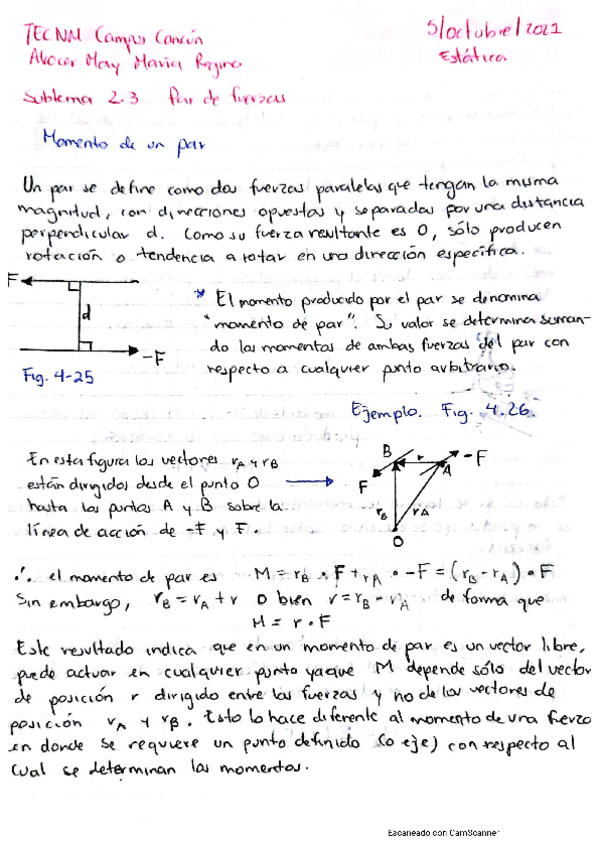 TECNM Campus Cancún
5/octubre/2021
Alocer May Maria Regina
Estática
Subtema 2.3 Par de fuerzas
Momento de un par
Un par se define como dos fuerzas paralelas que tengan la misma
magnitud, con direcciones opuestas y separadas por una distancia
perpendicular d. Como su fuerza resultante es 0, sólo producen
rotación o tendencia a rotar en una dirección específica.
F
d
-F
Fig. 4-25
* El momento producido por el par se denomina
"momento de par". Su valor se determina suman-
do los momentos de ambas fuerzas del par con
respecto a cualquier punto arbitrario.
Ejemplo. Fig. 4.26
En esta figura los vectores rA y rB
están dirigidos desde el punto O
hasta los puntos A y B sobre la
línea de acción de -F y F.
B
r
-F
A
F
rB
rA
O
∴ el momento de par es M = rB · F + rA · -F = (rB - rA) · F
Sin embargo, rB = rA + r o bien r = rB - rA de forma que
M = r · F
Este resultado indica que en un momento de par es un vector libre,
puede actuar en cualquier punto ya que M depende sólo del vector
de posición r dirigido entre las fuerzas y no de los vectores de
posición rA y rB. Esto lo hace diferente al momento de una fuerza
en donde se requiere un punto definido (o eje) con respecto al
cual se determinan los momentos.
Escaneado con CamScanner